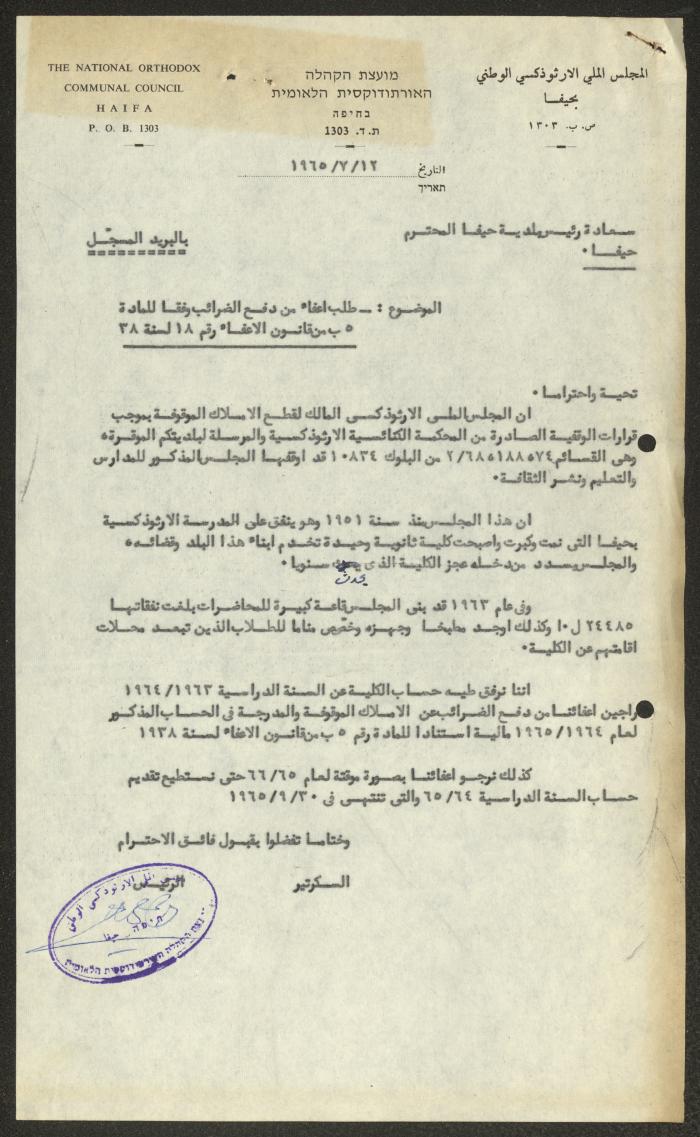 THE NATIONAL ORTHODOX
COMMUNAL COUNCIL
HAIFA
P. O. B. 1303
מועצת הקהלה
האורתודוקסית הלאומית
בחיפה
ת.ד. 1303
المجلس الملي الارثوذكسي الوطني
بحيفا
ص. ب. ١٣٠٣
التاريخ ١٩٦٥/٧/١٢
תאריך
سعادة رئيس بلدية حيفا المحترم
حيفا ٠
بالبريد المسجّل
الموضوع : ــ طلب اعفاء من دفع الضرائب وفقا للمادة
٥ ب من قانون الاعفاء رقم ١٨ لسنة ٣٨
تحية واحتراما ٠
ان المجلس الملي الارثوذكسي المالك لقطع الاملاك الموقوفة بموجب
قرارات الوقفية الصادرة من المحكمة الكنائسية الارثوذكسية والمرسلة لبلديتكم الموقرة ،
وهي القسائم ٢/٦٨٥١٨٨٥٧٤ من البلوك ١٠٨٣٤ قد اوقفها المجلس المذكور للمدارس
والتعليم ونشر الثقافة ٠
ان هذا المجلس منذ سنة ١٩٥١ وهو ينفق على المدرسة الارثوذكسية
بحيفا التي نمت وكبرت واصبحت كلية ثانوية وحيدة تخدم ابناء هذا البلد وقضائه ،
والمجلس يسدد من دخله عجز الكلية الذي سنويا ٠
يحدث
وفي عام ١٩٦٣ قد بنى المجلس قاعة كبيرة للمحاضرات بلغت نفقاتها
٢٤٤٨٥ ل٠ا وكذلك اوجد مطبخا وجهزه وخصّص مناما للطلاب الذين تبعد محلات
اقامتهم عن الكلية ٠
اننا نرفق طيه حساب الكلية عن السنة الدراسية ١٩٦٤/١٩٦٣
راجين اعفائنا من دفع الضرائب عن الاملاك الموقوفة والمدرجة في الحساب المذكور
لعام ١٩٦٥/١٩٦٤ مالية استنادا للمادة رقم ٥ ب من قانون الاعفاء لسنة ١٩٣٨
كذلك نرجو اعفائنا بصورة موقتة لعام ٦٦/٦٥ حتى نستطيع تقديم
حساب السنة الدراسية ٦٥/٦٤ والتي تنتهي في ١٩٦٥/٩/٣٠
وختاما تفضلوا بقبول فائق الاحترام
السكرتير الرئيس
الملي الارثوذكسي الوطني
חיפה حيفا
הקהלה האורתודוקסית הלאומית